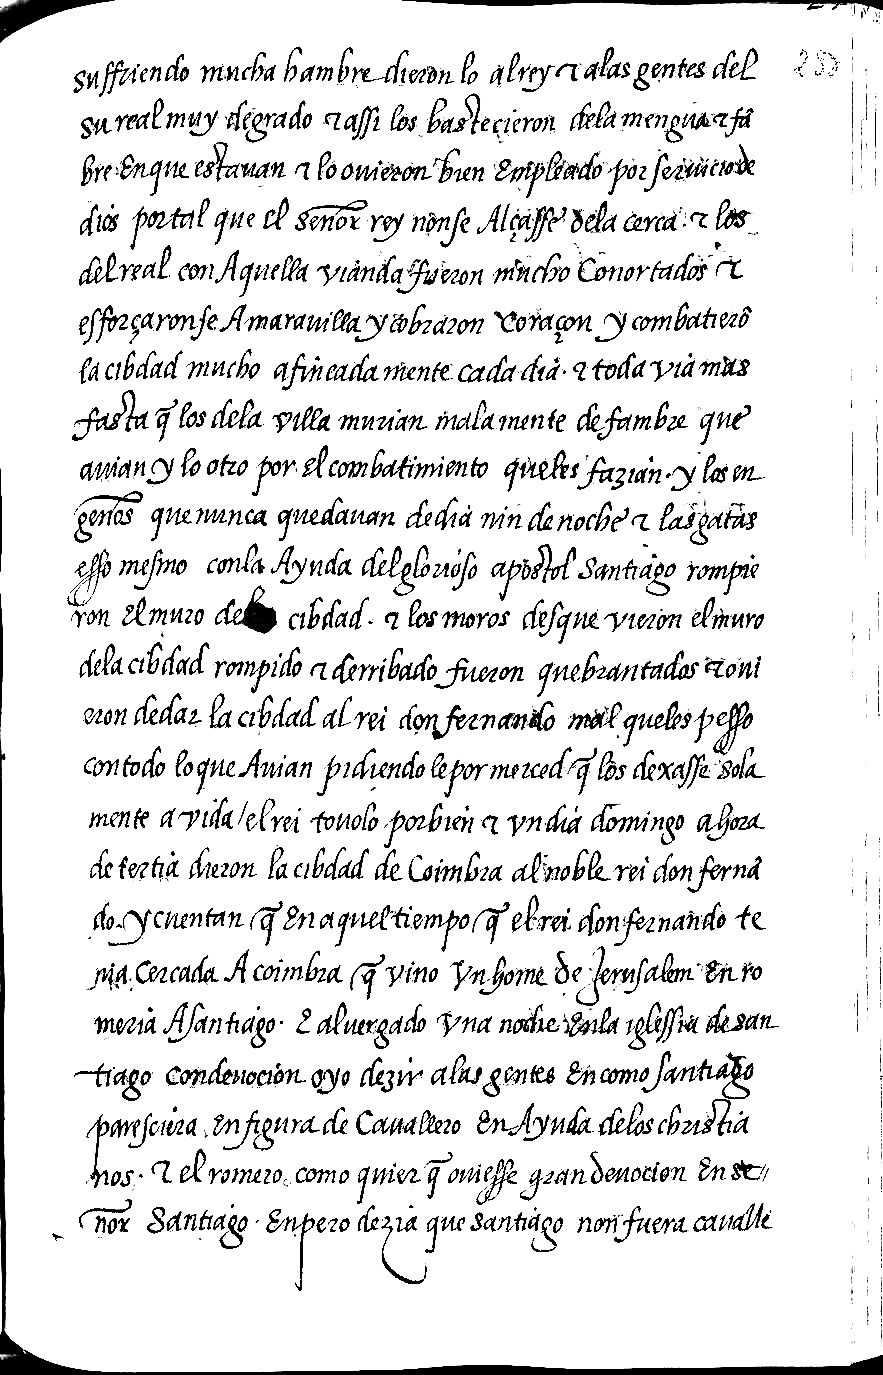 suffriendo mucha hambre dieron lo al rey & alas gentes del
su real muy degrado & assi los bastecieron dela mengua & fã
bre En que estauan & lo ouieron bien Empleado por seruicio de
dios por tal que el señor rey non se Alçasse dela cerca. & los
del real con Aquella vianda fueron mucho Conortados &
esforçaronse A marauilla y cobraron Coraçon y combatierõ
la cibdad mucho afincada mente cada dia. & toda via mas
fasta q̃ los dela villa murian mala mente de fambre que
auian y lo otro por el combatimiento queles fazian. y los en
geños que nunca quedauan de dia nin de noche & las gatas
esso mesmo con la Ayuda del glorioso apostol Santiago rompie
ron El muro de cibdad. & los moros desque vieron el muro
dela cibdad rompido & derribado fueron quebrantados & oui
eron de dar la cibdad al rei don fernando mal queles pesso
con todo lo que Auian pidiendo le por merced q̃ los dexasse sola
mente a vida / el rei touolo por bien & vn dia domingo a hora
de tertia dieron la cibdad de Coimbra al noble rei don fernã
do. y cuentan q̃ En aquel tiempo q̃ el rei don fernando te
nia Cercada A coimbra q̃ vino vn home de Jerusalem En ro
meria A santiago. E aluergado vna noche En la iglessia de san
tiago con deuocion oyo dezir a las gentes En como santiago
paresciera En figura de Cauallero En Ayuda delos christia
nos. & el romero como quier q̃ ouiesse gran deuocion En se//
ñor Santiago. En pero dezia que santiago non fuera caualle